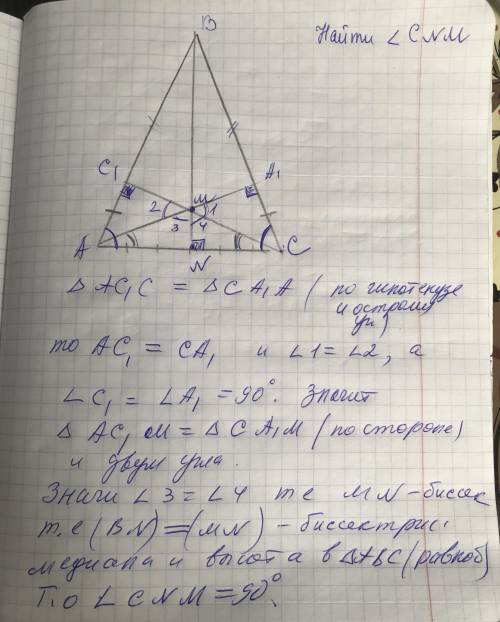 Найти ∠CNM
B
C₁
A₁
M
2
1
3
4
A
N
C
Δ AC₁C = Δ CA₁A (по гипотенузе
и острому
уг)
то AC₁ = CA₁ и ∠1=∠2, а
∠C₁ = ∠A₁ = 90°. Значит
Δ AC₁M = Δ CA₁M (по стороне)
и двум угла.
Значи ∠3=∠4 т е MN-биссек
т.е (BN)=(MN) - биссектрис.
медиана и высота в ΔABC (равноб)
Т.о ∠CNM=90°.